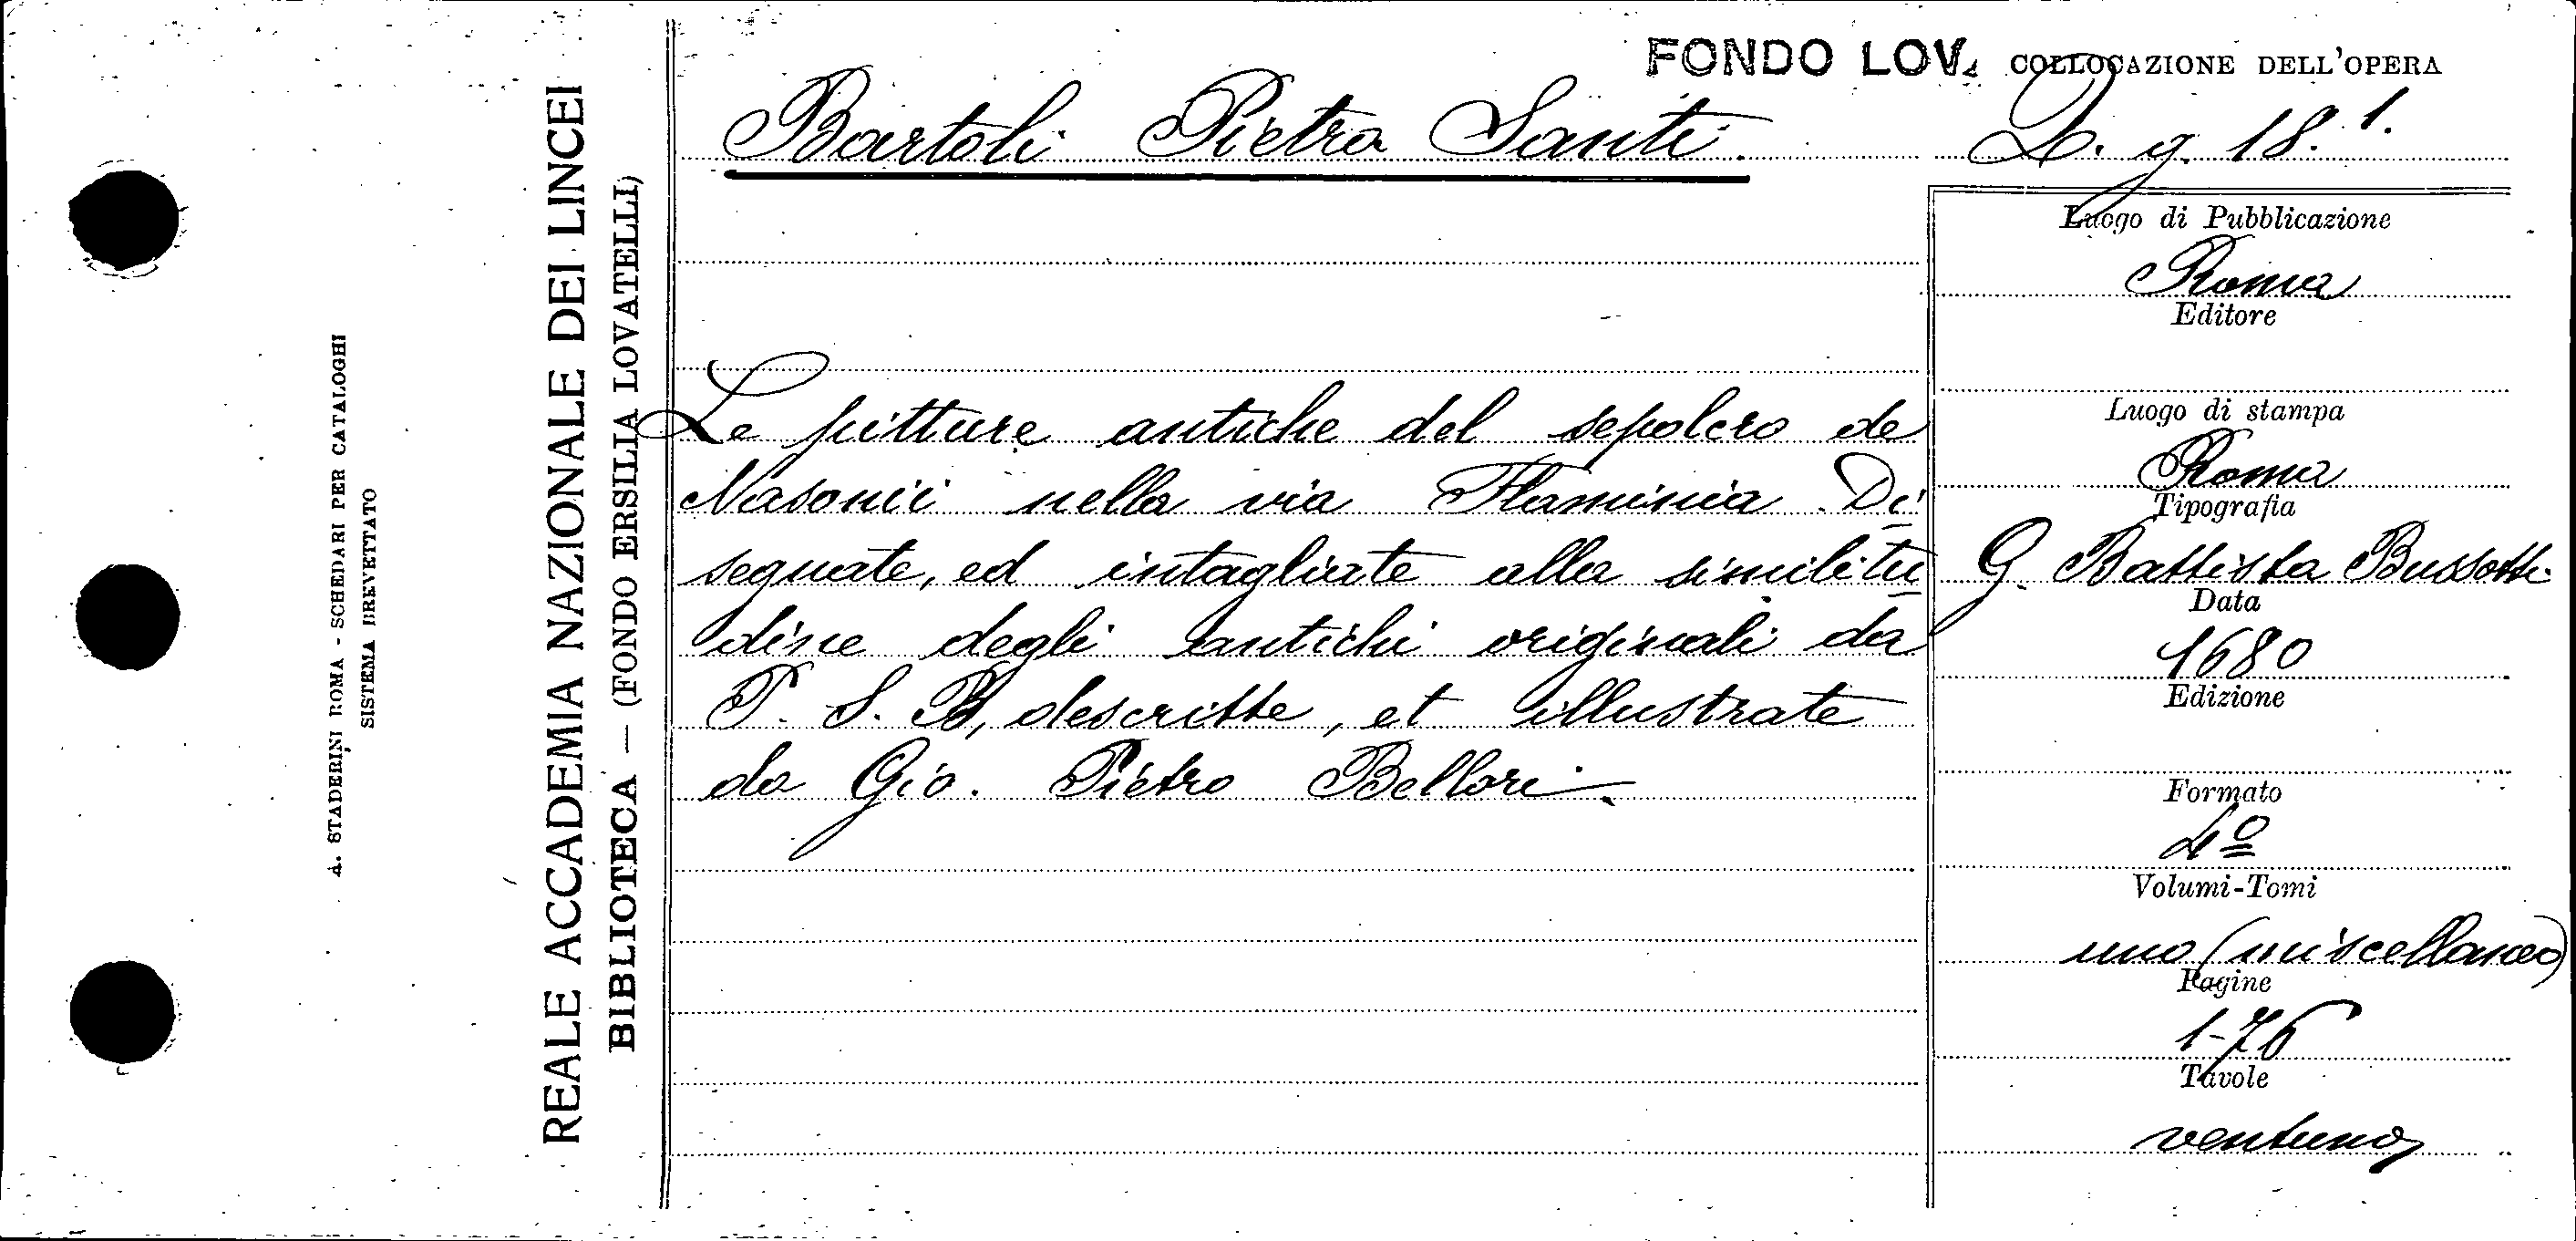 FONDO LOV. COLLOCAZIONE DELL'OPERA
Bartoli Pietro Santi.
D. g. 18. 1.
Le pitture antiche del sepolcro de
Nasonii nella via Flaminia. Di
segnate, ed intagliate alla similitu
dine degli antichi originali da
P. S. B, descritte, et illustrate
da Gio. Pietro Bellori.
Luogo di Pubblicazione
Roma
Editore
Luogo di stampa
Roma
Tipografia
G. Battista Bussotti
Data
1680
Edizione
Formato
4º
Volumi-Tomi
uno (miscellaneo)
Pagine
1-76
Tavole
ventuno
REALE ACCADEMIA NAZIONALE DEI LINCEI
BIBLIOTECA — (FONDO ERSILIA LOVATELLI)
A. STADERINI ROMA - SCHEDARI PER CATALOGHI
SISTEMA BREVETTATO